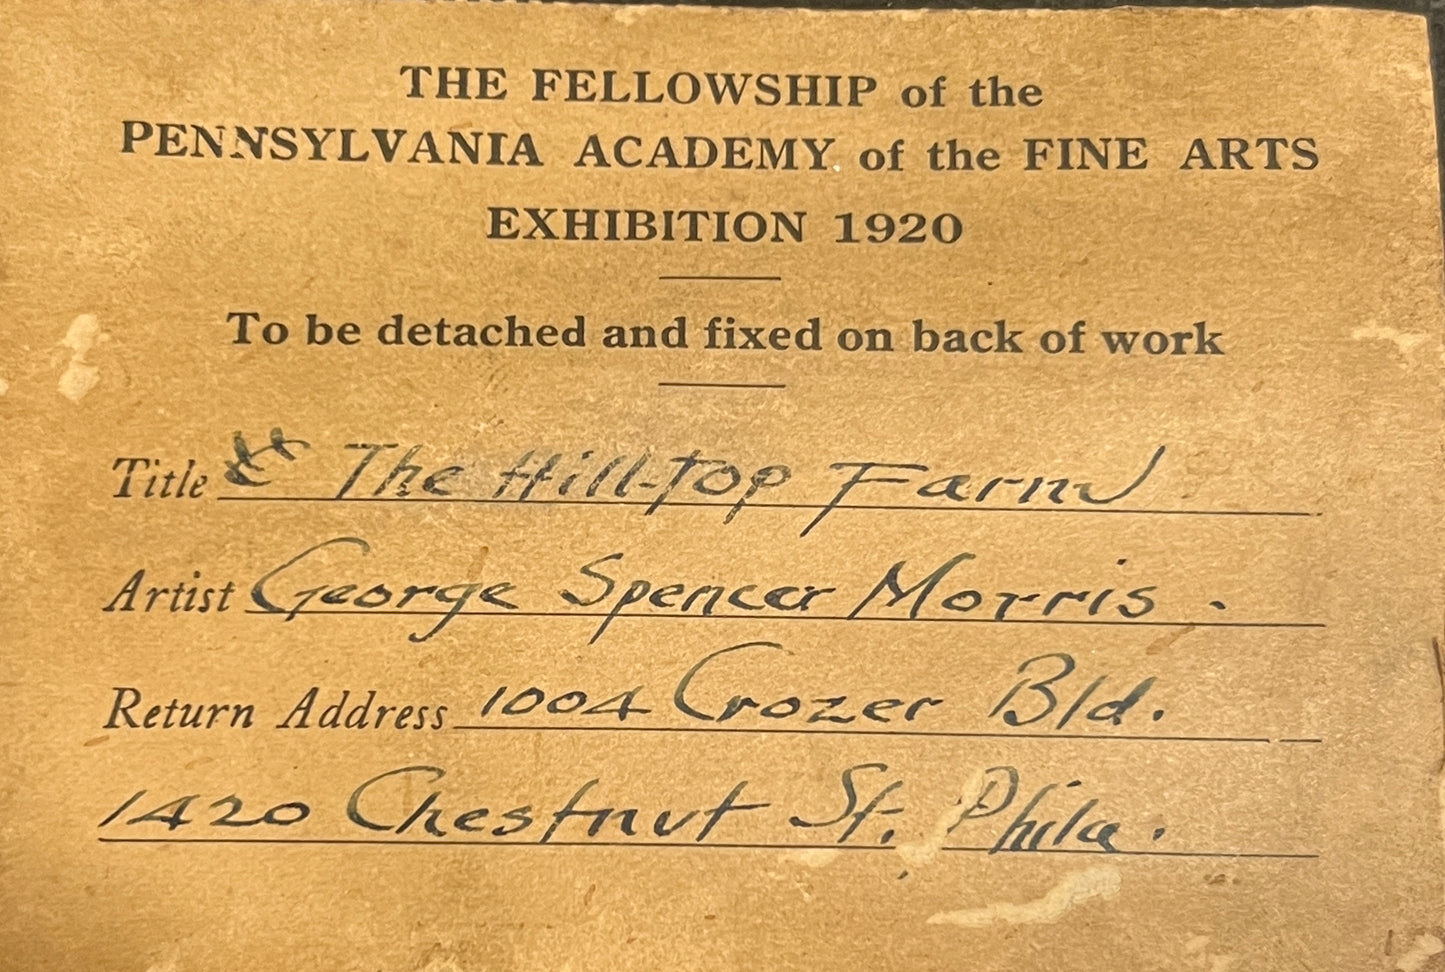 THE FELLOWSHIP of the
PENNSYLVANIA ACADEMY of the FINE ARTS
EXHIBITION 1920
To be detached and fixed on back of work
Title The Hill-top Farm
Artist George Spencer Morris.
Return Address 1004 Crozer Bld.
1420 Chestnut St. Phila.